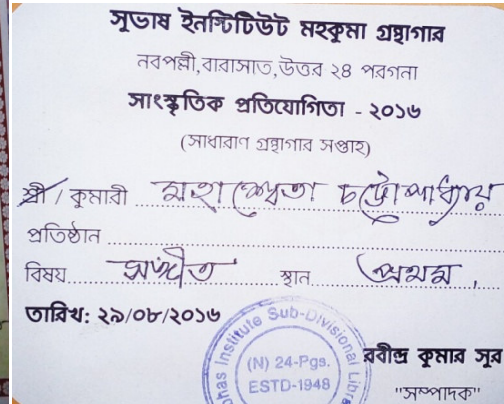 সুভাষ ইনস্টিটিউট মহকুমা গ্রন্থাগার
নবপল্লী, বারাসাত, উত্তর ২৪ পরগনা
সাংস্কৃতিক প্রতিযোগিতা - ২০১৬
(সাধারণ গ্রন্থাগার সপ্তাহ)
শ্রী / কুমারী মহাশ্বেতা চট্টোপাধ্যায়
প্রতিষ্ঠান
বিষয় সঙ্গীত স্থান প্রথম
তারিখ: ২৯/০৮/২০১৬
Institute Sub-Divisional
(N) 24-Pgs.
ESTD-1948
রবীন্দ্র কুমার সূর
"সম্পাদক"